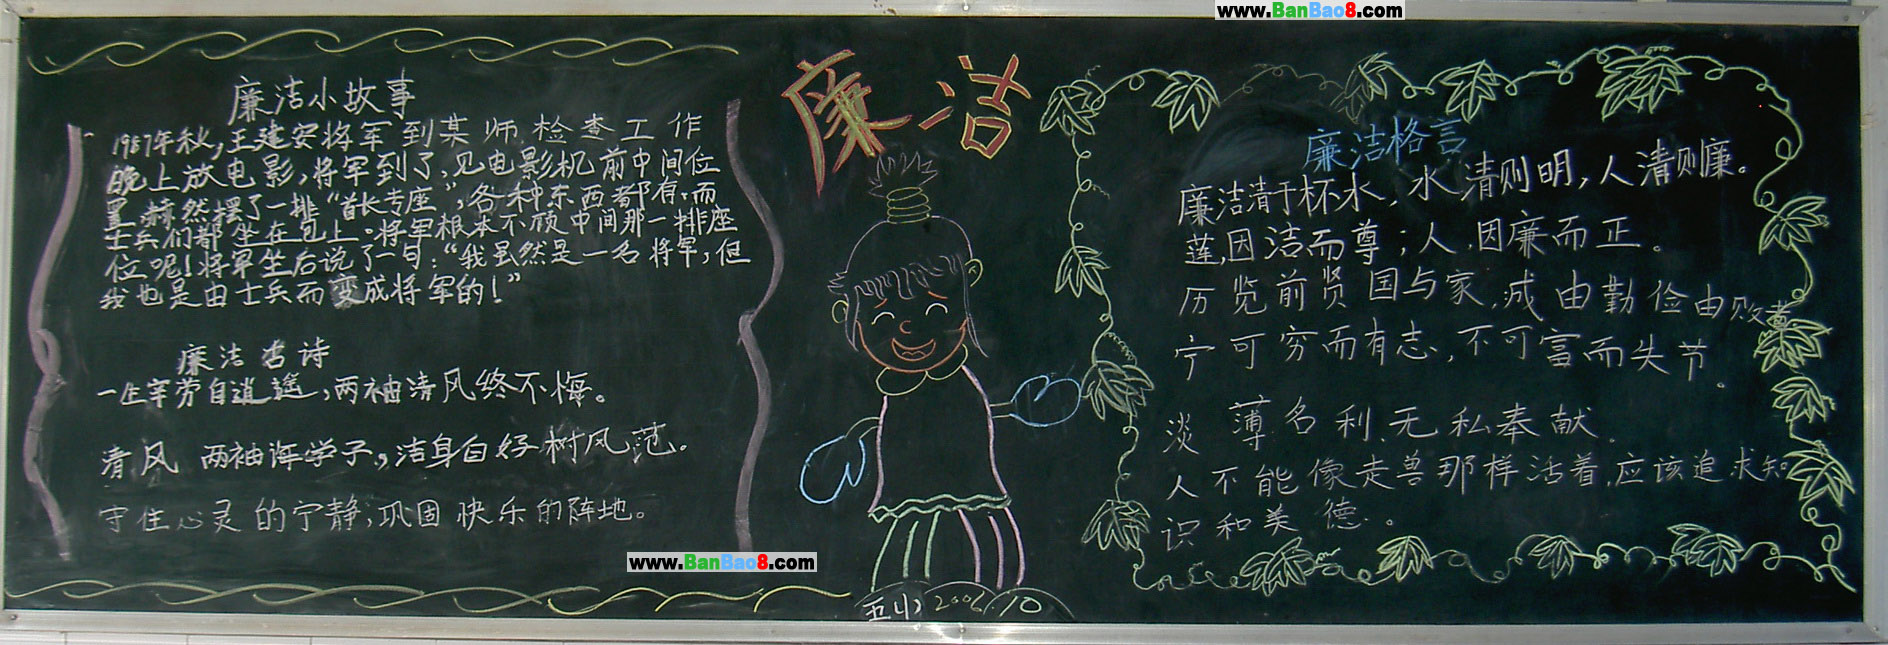 www.BanBao8.com
廉洁
廉洁小故事
1987年秋,王建安将军到某师检查工作
晚上放电影,将军到了,见电影机前中间位
置赫然摆了一排“首长专座”,各种东西都有。而
士兵们都坐在地上。将军根本不顾中间那一排座
位呢!将军坐后说了一句:“我虽然是一名将军,但
我也是由士兵而变成将军的!”
廉洁古诗
一生辛劳自逍遥,两袖清风终不悔。
清风 两袖诲学子,洁身自好树风范。
守住心灵的宁静,巩固快乐的阵地。
廉洁格言
廉洁清于杯水,水清则明,人清则廉。
莲,因洁而尊;人,因廉而正。
历览前贤国与家,成由勤俭由败奢
宁可穷而有志,不可富而失节。
淡薄名利、无私奉献。
人不能像走兽那样活着,应该追求知
识和美德。
www.BanBao8.com
五(1) 2006.10